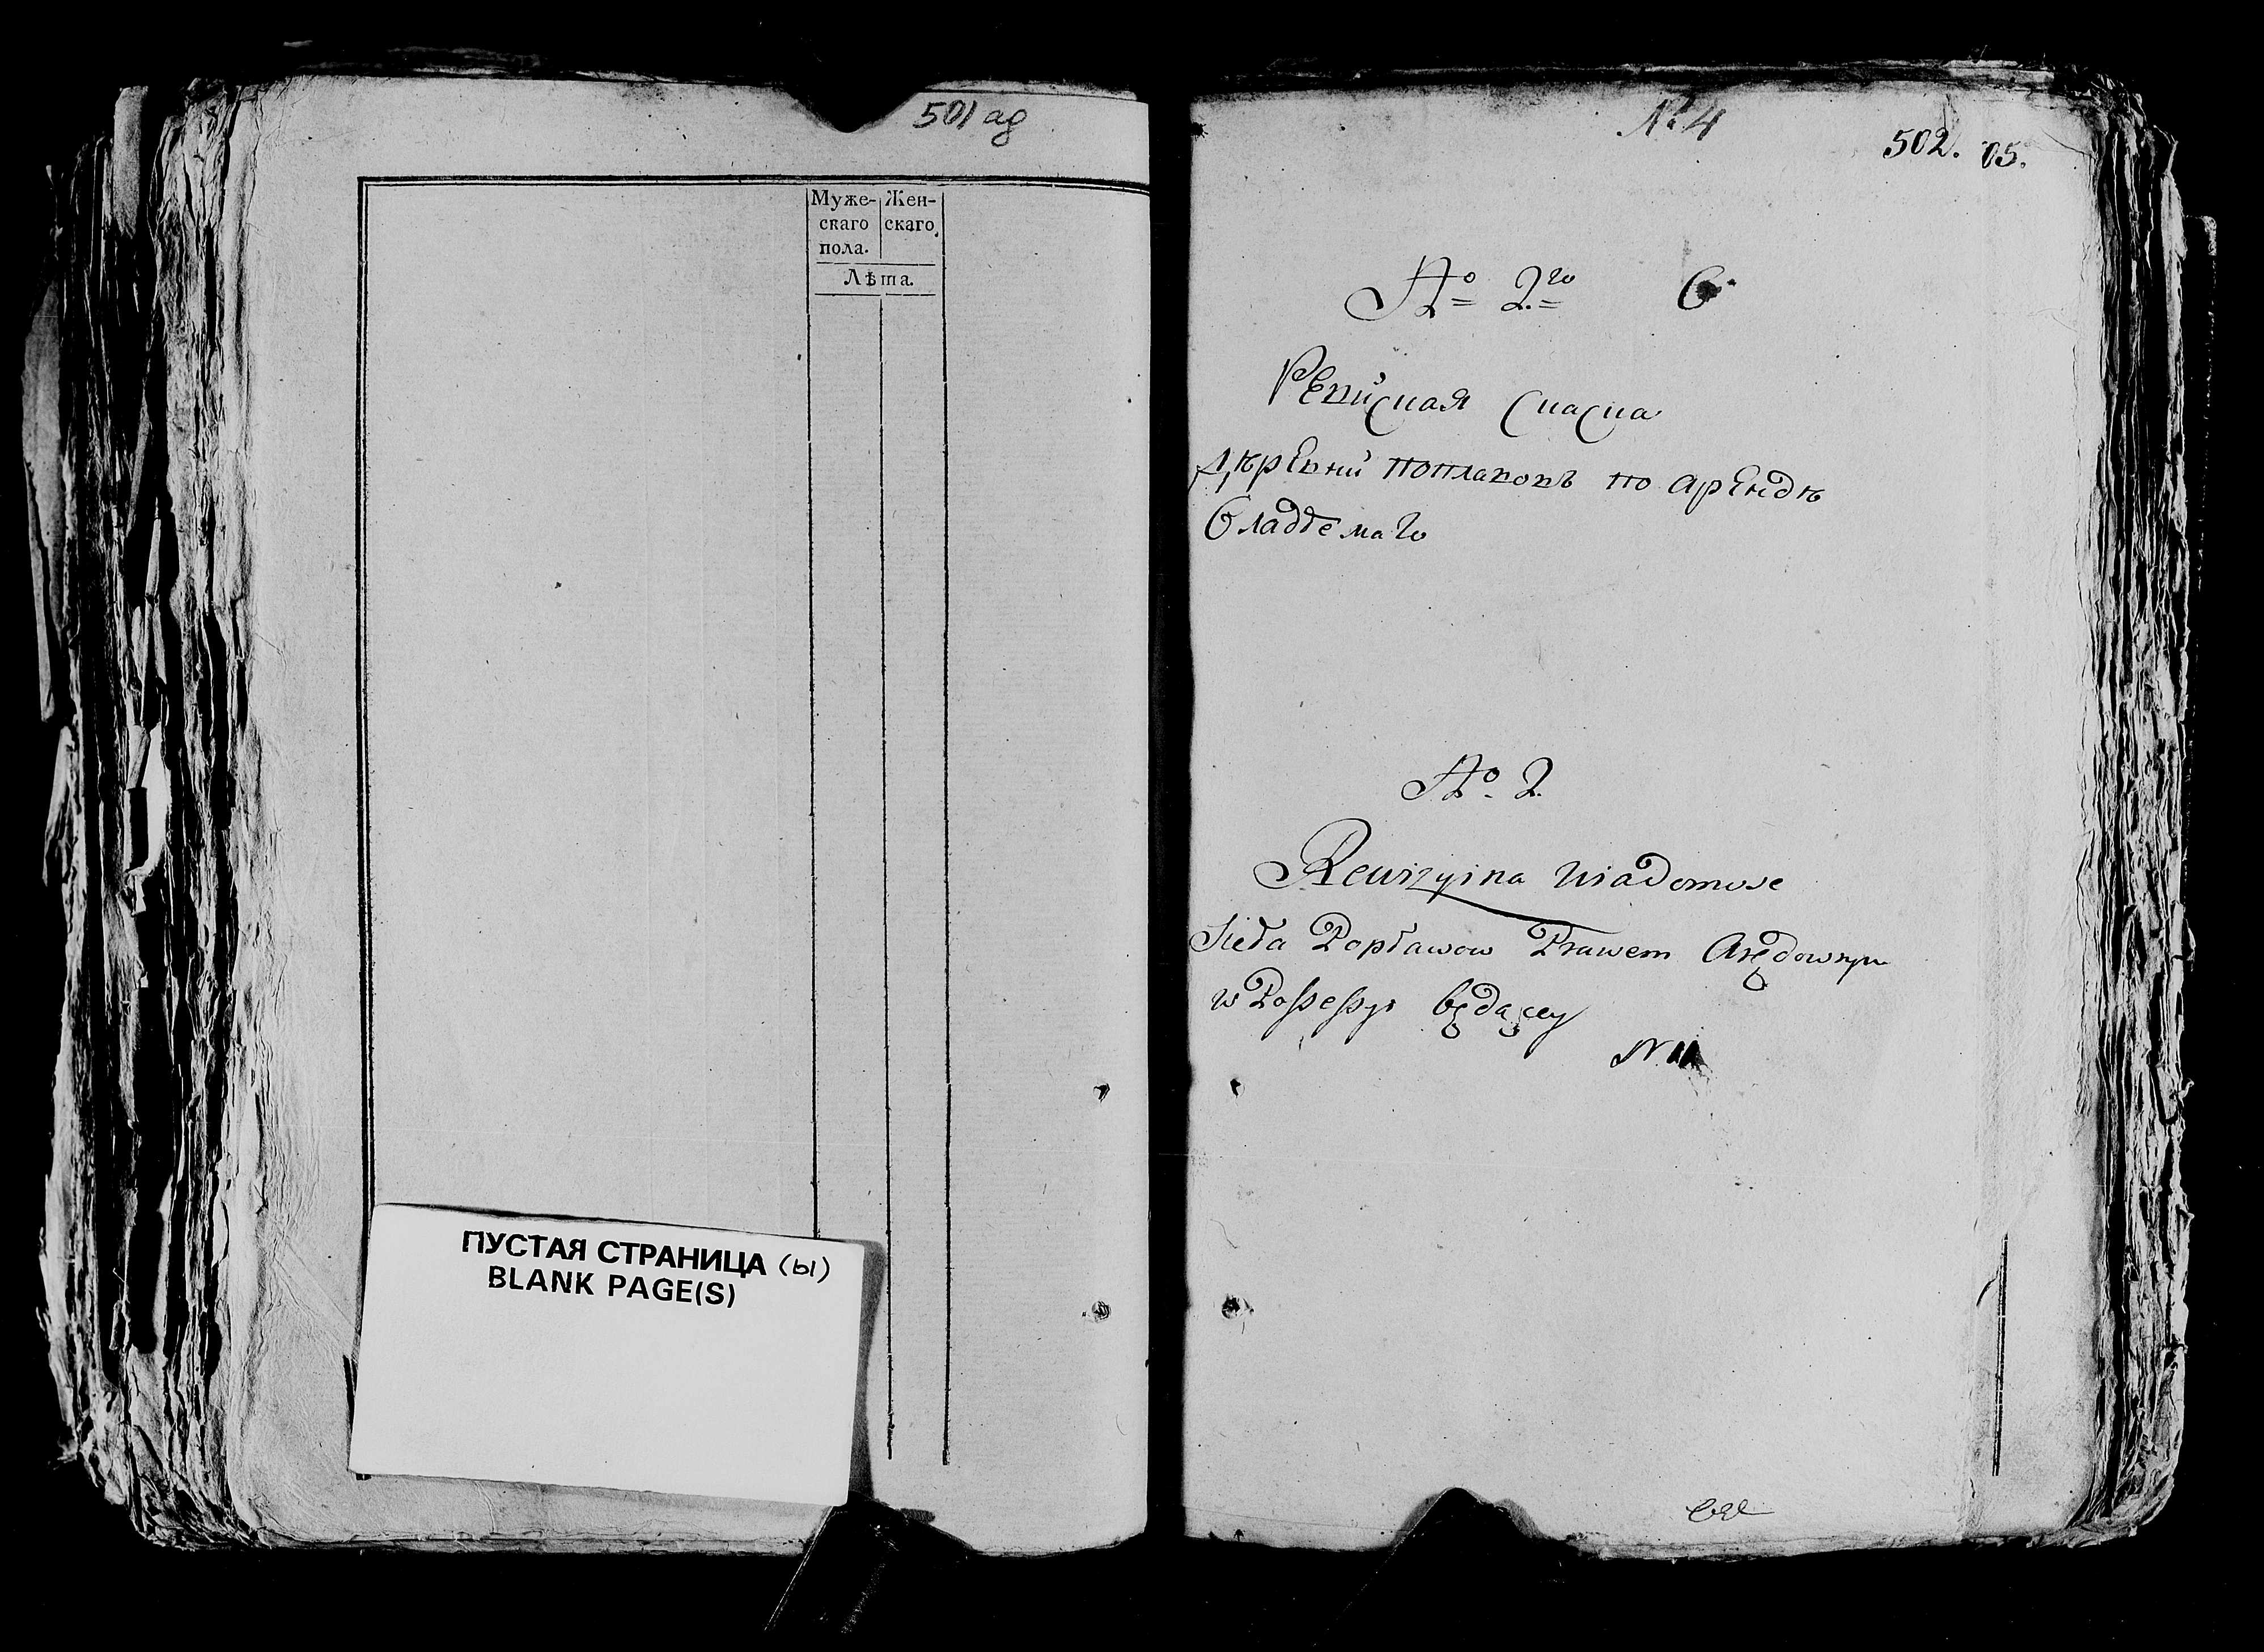 501 ад
Муже- Жен-
скаго скаго
пола.
Лѣта.
ПУСТАЯ СТРАНИЦА (Ы)
BLANK PAGE(S)
№ 4
502. 05.
№ 2го 6
Ревиская Скаска
Дѣревни Поплавовъ по арендѣ
Владѣемаго
№ 2
Rewizyina Wiadomosc
Sieła Popławow Prawem Arędownym
w Possessyi będącey
N.